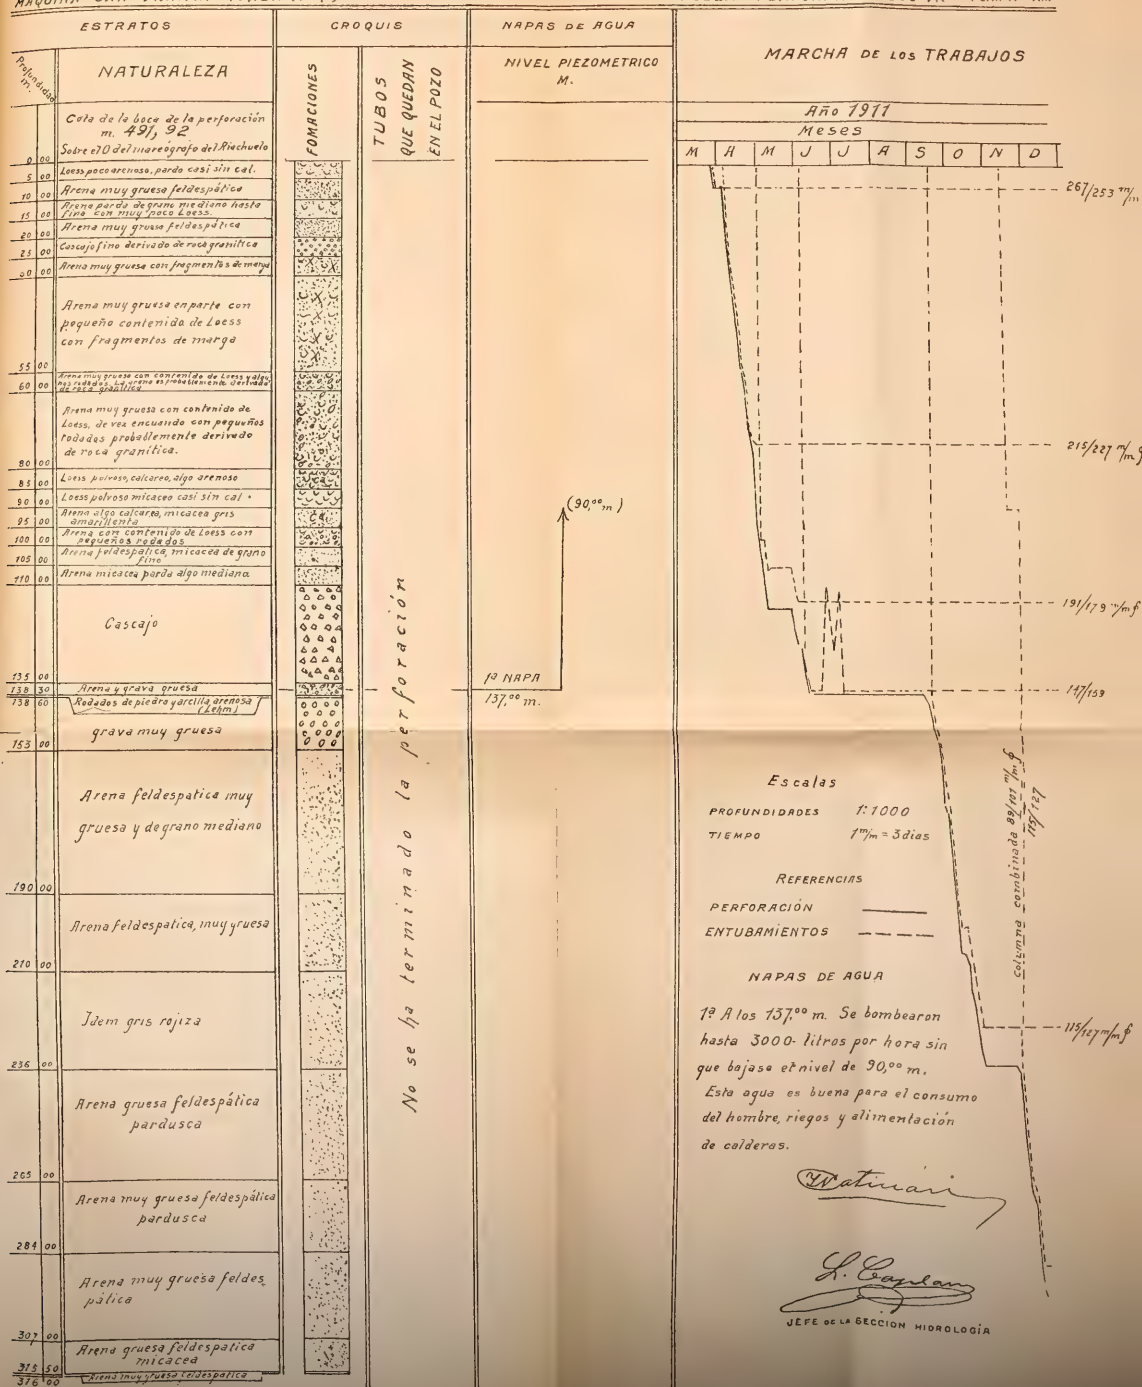 ESTRATOS
CROQUIS
NAPAS DE AGUA
MARCHA DE LOS TRABAJOS
Profundidad m.
NATURALEZA
FOMACIONES
TUBOS
QUE QUEDAN
EN EL POZO
NIVEL PIEZOMETRICO
M.
Año 1911
Meses
M A M J J A S O N D
Cota de la boca de la perforación
m. 491,92
Sobre el 0 del mareógrafo del Riachuelo
0 00
Loess poco arenoso, pardo casi sin cal.
5 00
Arena muy gruesa feldespática
10 00
Arena parda de grano mediano hasta
fino con muy poco Loess.
15 00
Arena muy gruesa feldespática
20 00
Cascajo fino derivado de roca granitica
25 00
Arena muy gruesa con fragmentos de marga
30 00
Arena muy gruesa en parte con
pequeño contenido de Loess
con fragmentos de marga
55 00
Arena muy gruesa con contenido de Loess y algu
nos rodados. La arena es probablemente derivada
de roca granitica
60 00
Arena muy gruesa con contenido de
Loess, de vez encuando con pequeños
rodados probablemente derivado
de roca granitica.
80 00
Loess polvoso, calcareo, algo arenoso
85 00
Loess polvoso micaceo casi sin cal.
90 00
Arena algo calcarea, micacea gris
amarillenta
95 00
Arena con contenido de Loess con
pequeños rodados
100 00
Arena feldespatica, micacea de grano
fino
105 00
Arena micacea parda algo mediana
110 00
Cascajo
135 00
Arena y grava gruesa
138 30
Rodados de piedra y arcilla arenosa
(Lehm)
138 60
grava muy gruesa
153 00
Arena feldespatica muy
gruesa y de grano mediano
190 00
Arena feldespatica, muy gruesa
210 00
Idem gris rojiza
236 00
Arena gruesa feldespática
pardusca
265 00
Arena muy gruesa feldespática
pardusca
284 00
Arena muy gruesa feldes
pática
307 00
Arena gruesa feldespatica
micacea
315 50
Arena muy gruesa feldespatica
316 00
No se ha terminado la perforación
(90,00 m)
1ª NAPA
137,00 m.
267/253 m/m
215/227 m/m ϕ
191/179 m/m ϕ
147/159
Columna combinada 89/101 m/m ϕ
115/127
115/127 m/m ϕ
Escalas
PROFUNDIDADES 1:1000
TIEMPO 1 m/m = 3 dias
REFERENCIAS
PERFORACIÓN
ENTUBAMIENTOS
NAPAS DE AGUA
1ª A los 137,00 m. Se bombearon
hasta 3000- litros por hora sin
que bajase el nivel de 90,00 m.
Esta agua es buena para el consumo
del hombre, riegos y alimentación
de calderas.
JEFE DE LA SECCION HIDROLOGÍA